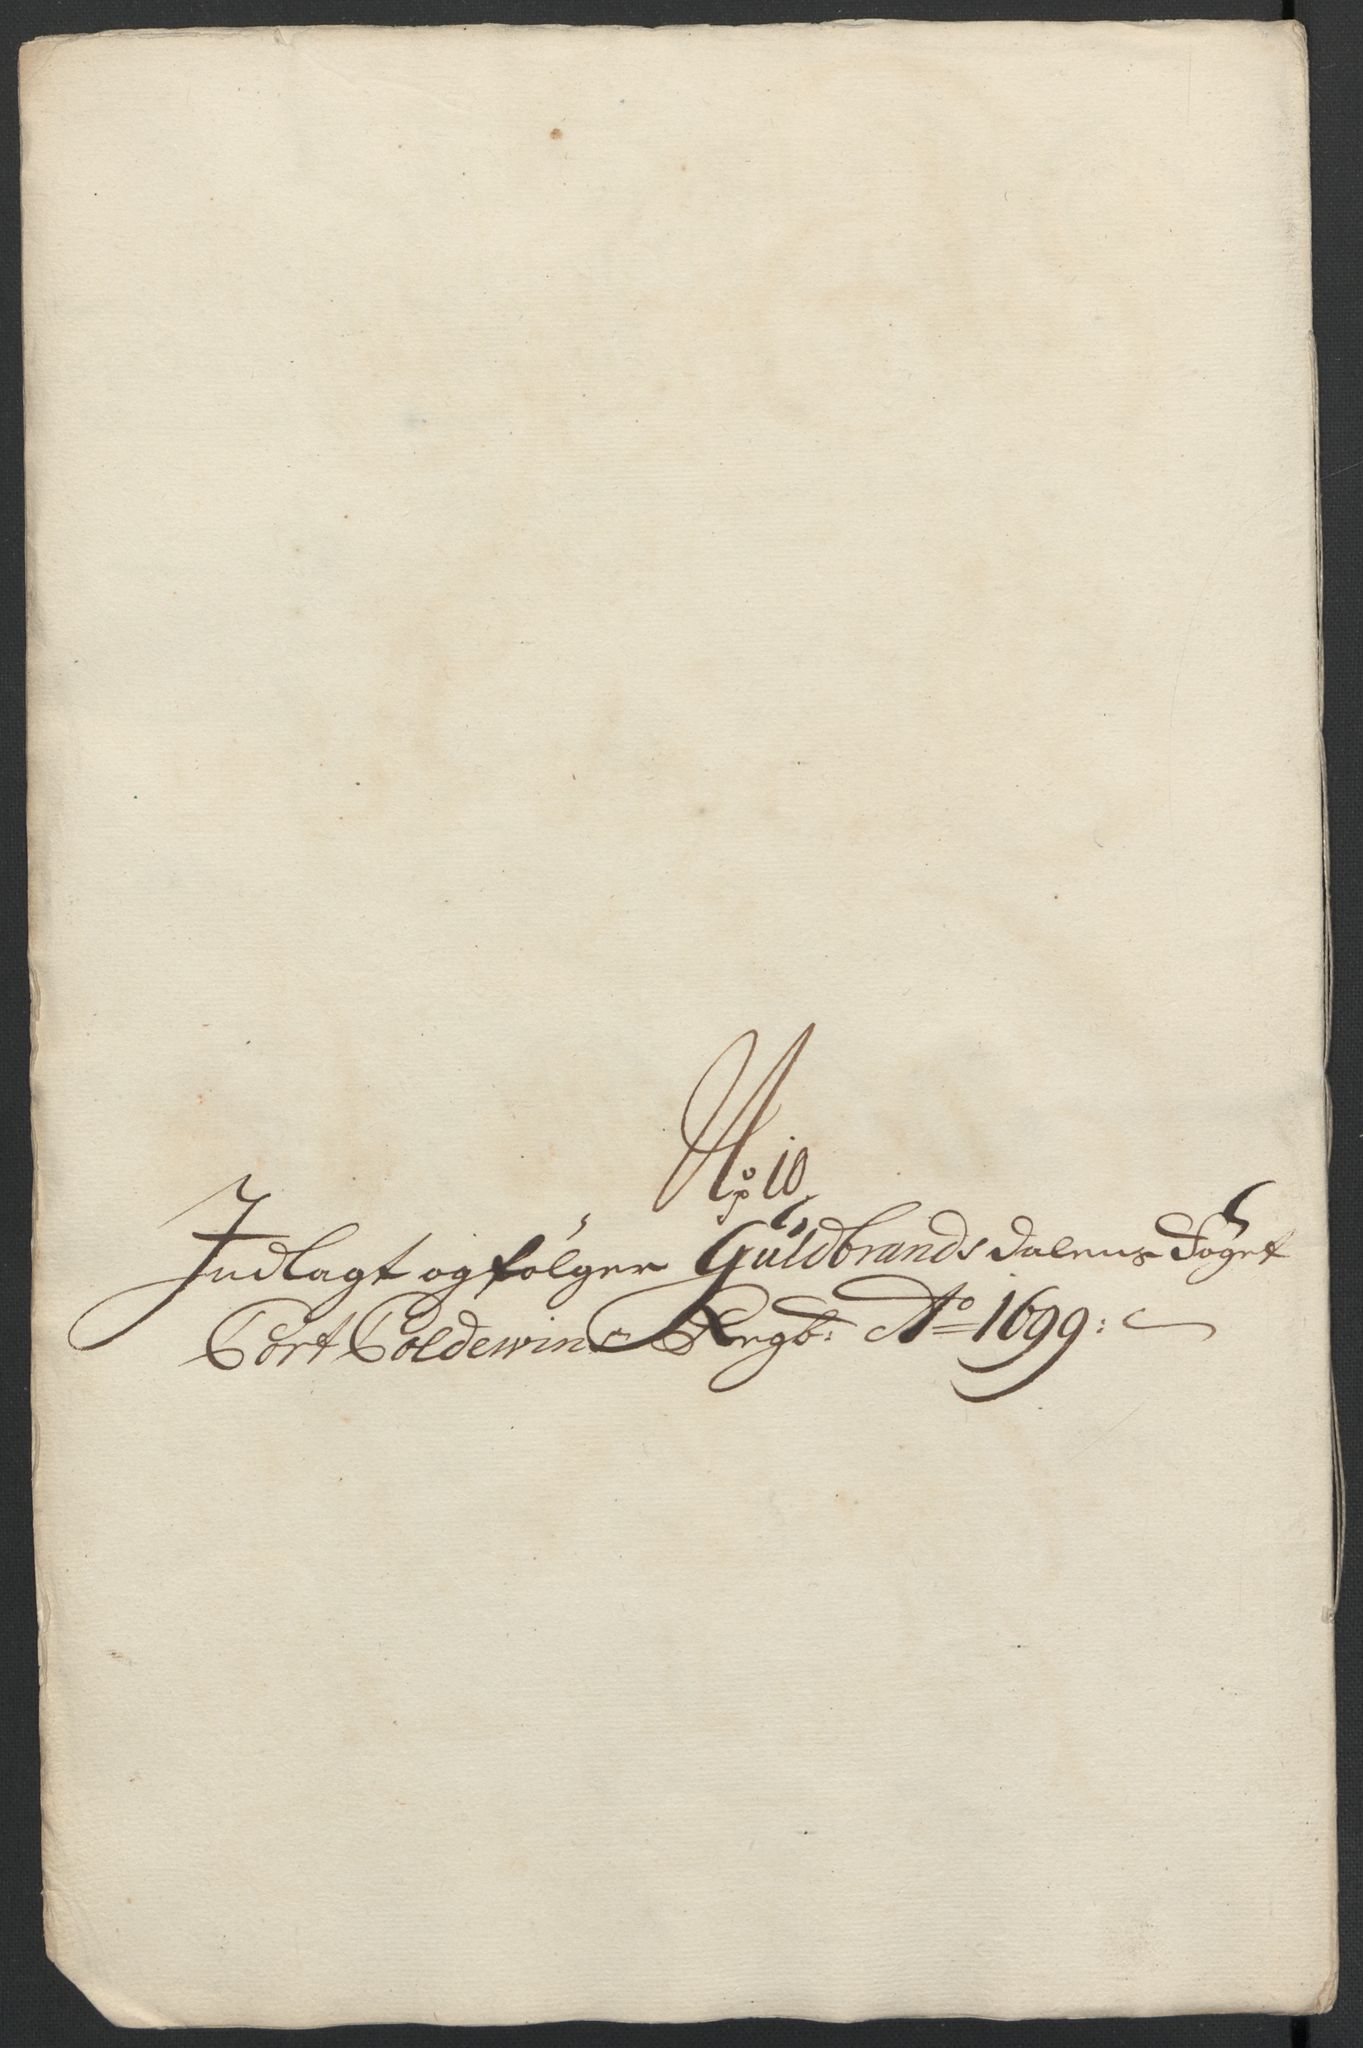 No 10
Indlagt og følger Guldbrands dalens Foget
Cort Coldewins Regb: Ao 1699: